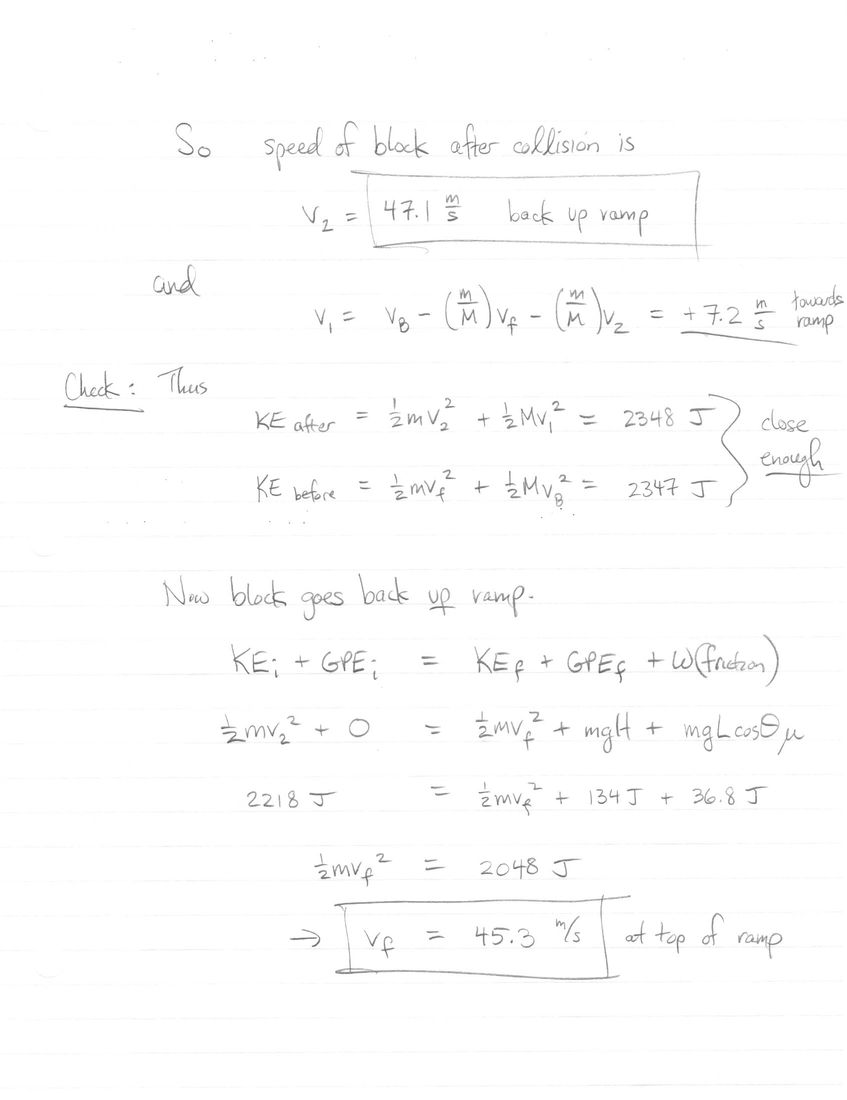 So speed of block after collision is
V₂ = 47.1 m/s back up ramp
and
V₁ = V_B - (m/M)V_f - (m/M)V₂ = +7.2 m/s towards ramp
Check: Thus
KE after = ½mV₂² + ½MV₁² = 2348 J
KE before = ½mV_f² + ½MV_B² = 2347 J
close enough
Now block goes back up ramp.
KE_i + GPE_i = KE_f + GPE_f + W(friction)
½mv₂² + 0 = ½mv_f² + mgH + mgLcosθμ
2218 J = ½mv_f² + 134 J + 36.8 J
½mv_f² = 2048 J
→ V_f = 45.3 m/s at top of ramp